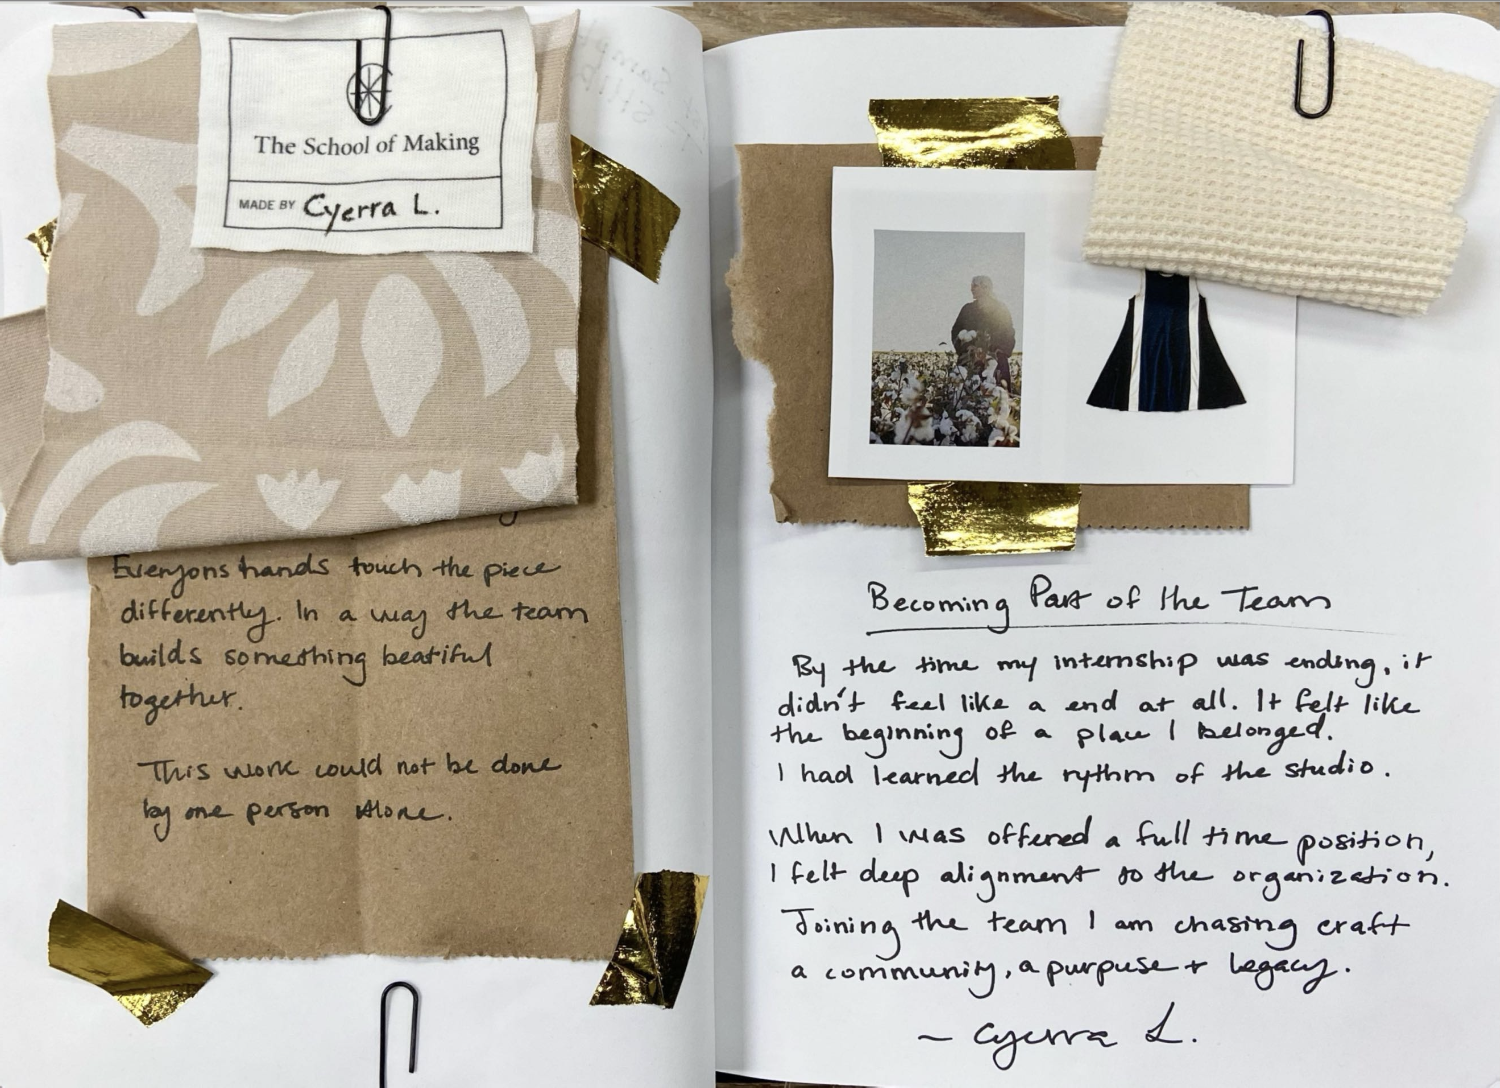 The School of Making
MADE BY Cyerra L.
Everyons hands touch the piece
differently. In a way the team
builds something beatiful
together.
This work could not be done
by one person alone.
Becoming Part of the Team
By the time my internship was ending, it
didn't feel like a end at all. It felt like
the beginning of a place I belonged.
I had learned the rythm of the studio.
When I was offered a full time position,
I felt deep alignment to the organization.
Joining the team I am chasing craft
a community, a purpuse + legacy.
~ Cyerra L.